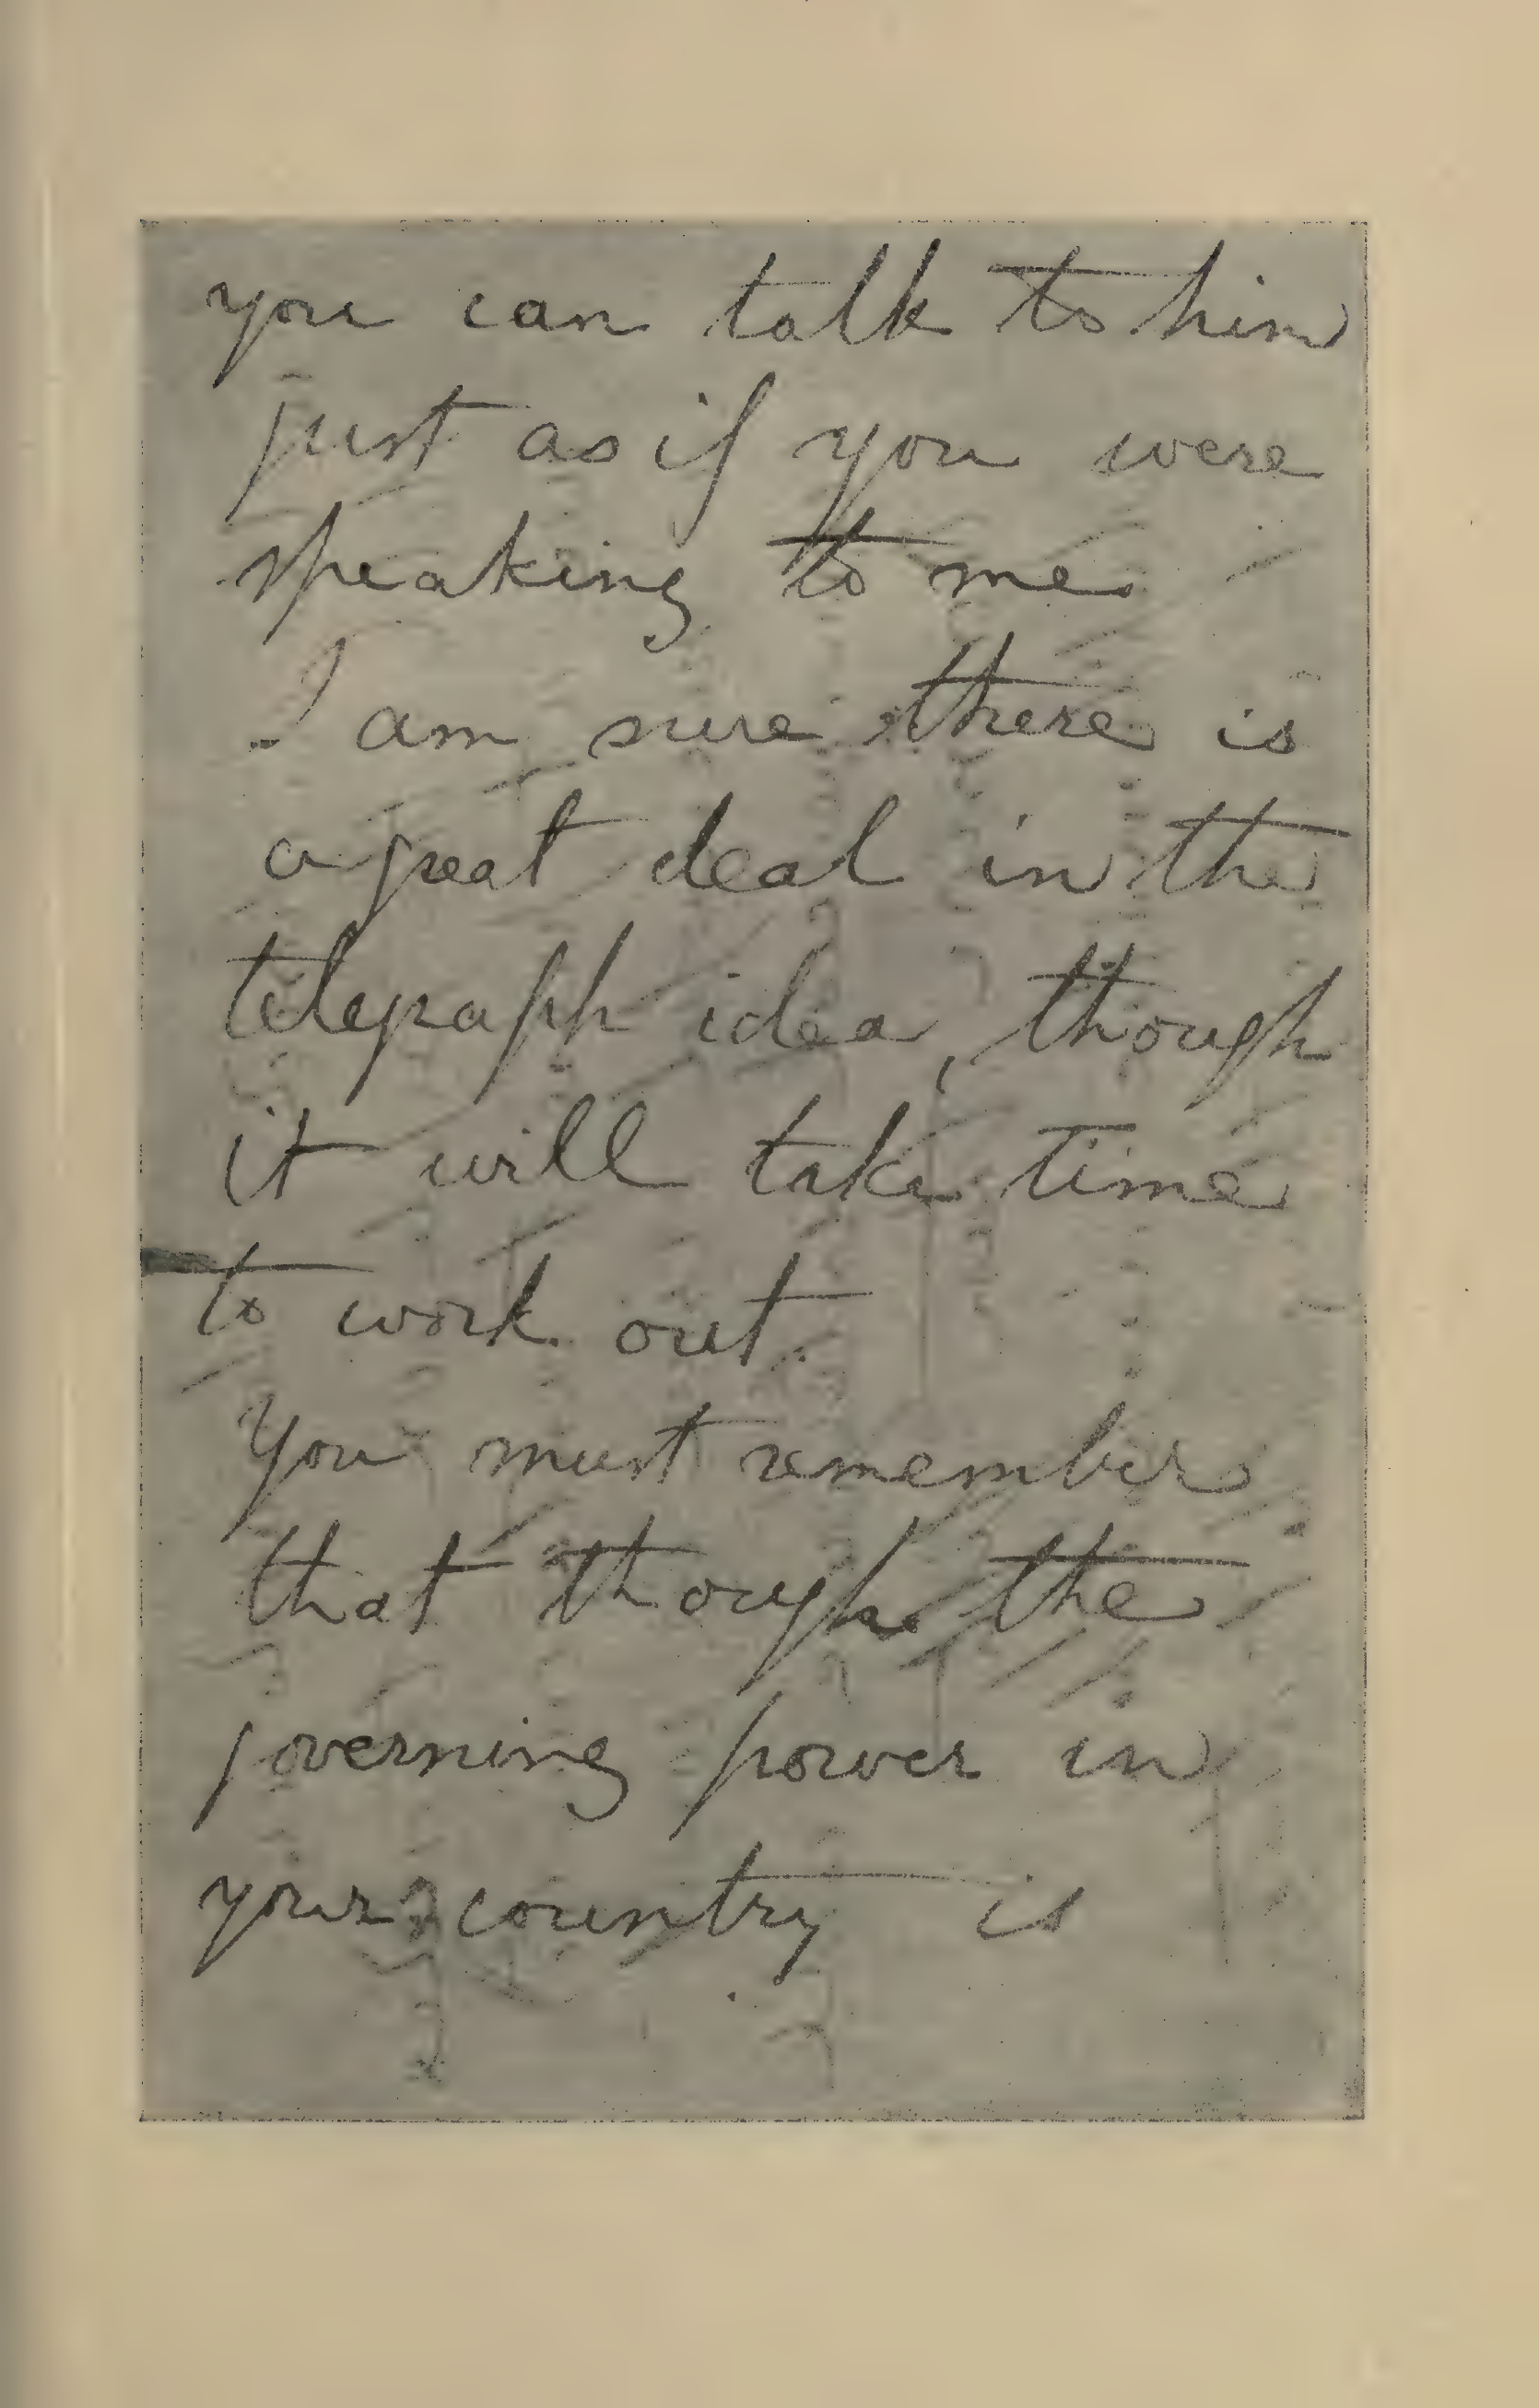 you can talk to him
just as if you were
speaking to me.
I am sure there is
a great deal in the
telegraph idea, though
it will take time
to work out.
You must remember
that though the
governing power in
your country is